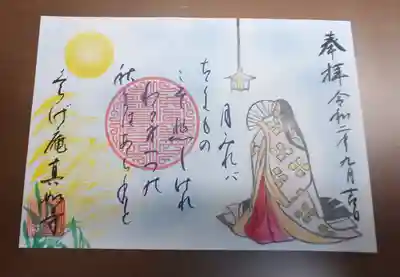 奉拝 令和二年九月吉日
月みれば
ちぢにもの
こそ悲しけれ
わが身一つの
秋にはあらねど